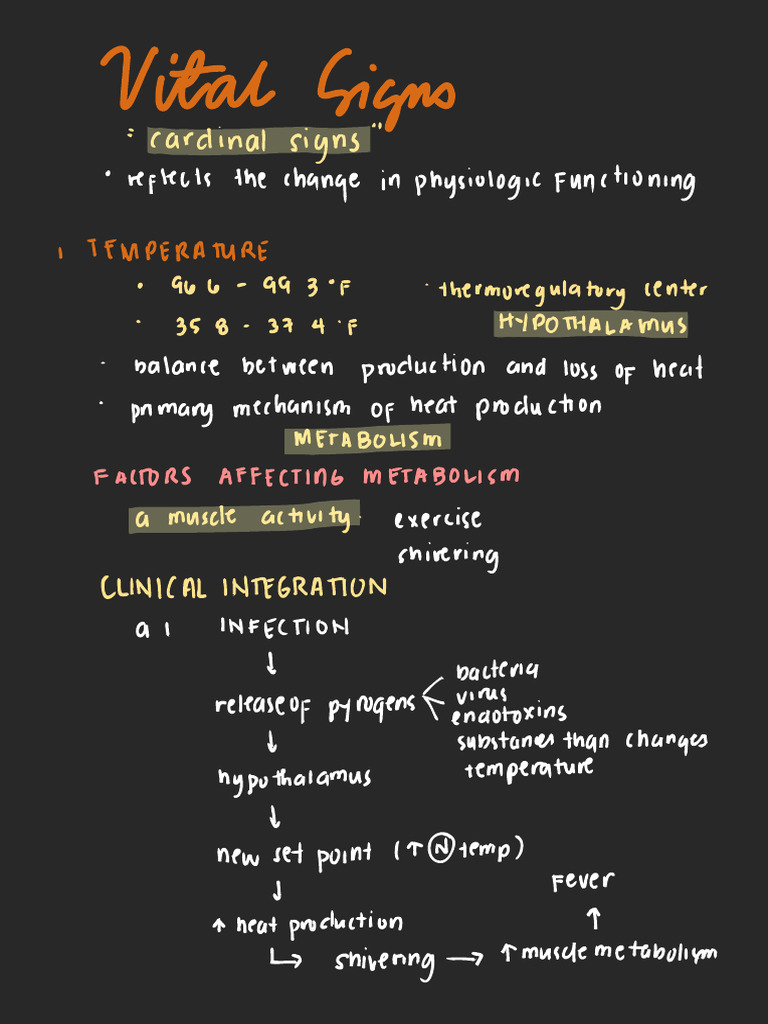 Vital Signs
"cardinal signs"
• reflects the change in physiologic functioning
1 TEMPERATURE
• 96 6 - 99 3 °F
· thermoregulatory center
• 35 8 - 37 4 °F
HYPOTHALAMUS
• balance between production and loss of heat
• primary mechanism of heat production
METABOLISM
FACTORS AFFECTING METABOLISM
a muscle activity · exercise
shivering
CLINICAL INTEGRATION
a 1 INFECTION
↓
bacteria
release of pyrogens < virus
endotoxins
↓
substances than changes
temperature
hypothalamus
↓
new set point (↑ Ⓝ temp)
↓
Fever
↑ heat production
↑
↳ shivering → ↑ muscle metabolism